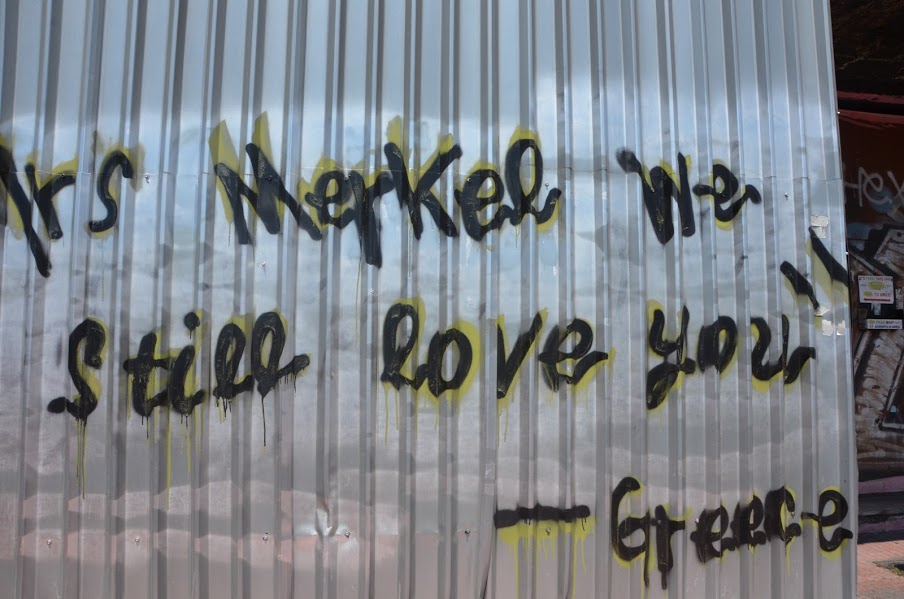 rs Merkel we
still love you"
— Greece